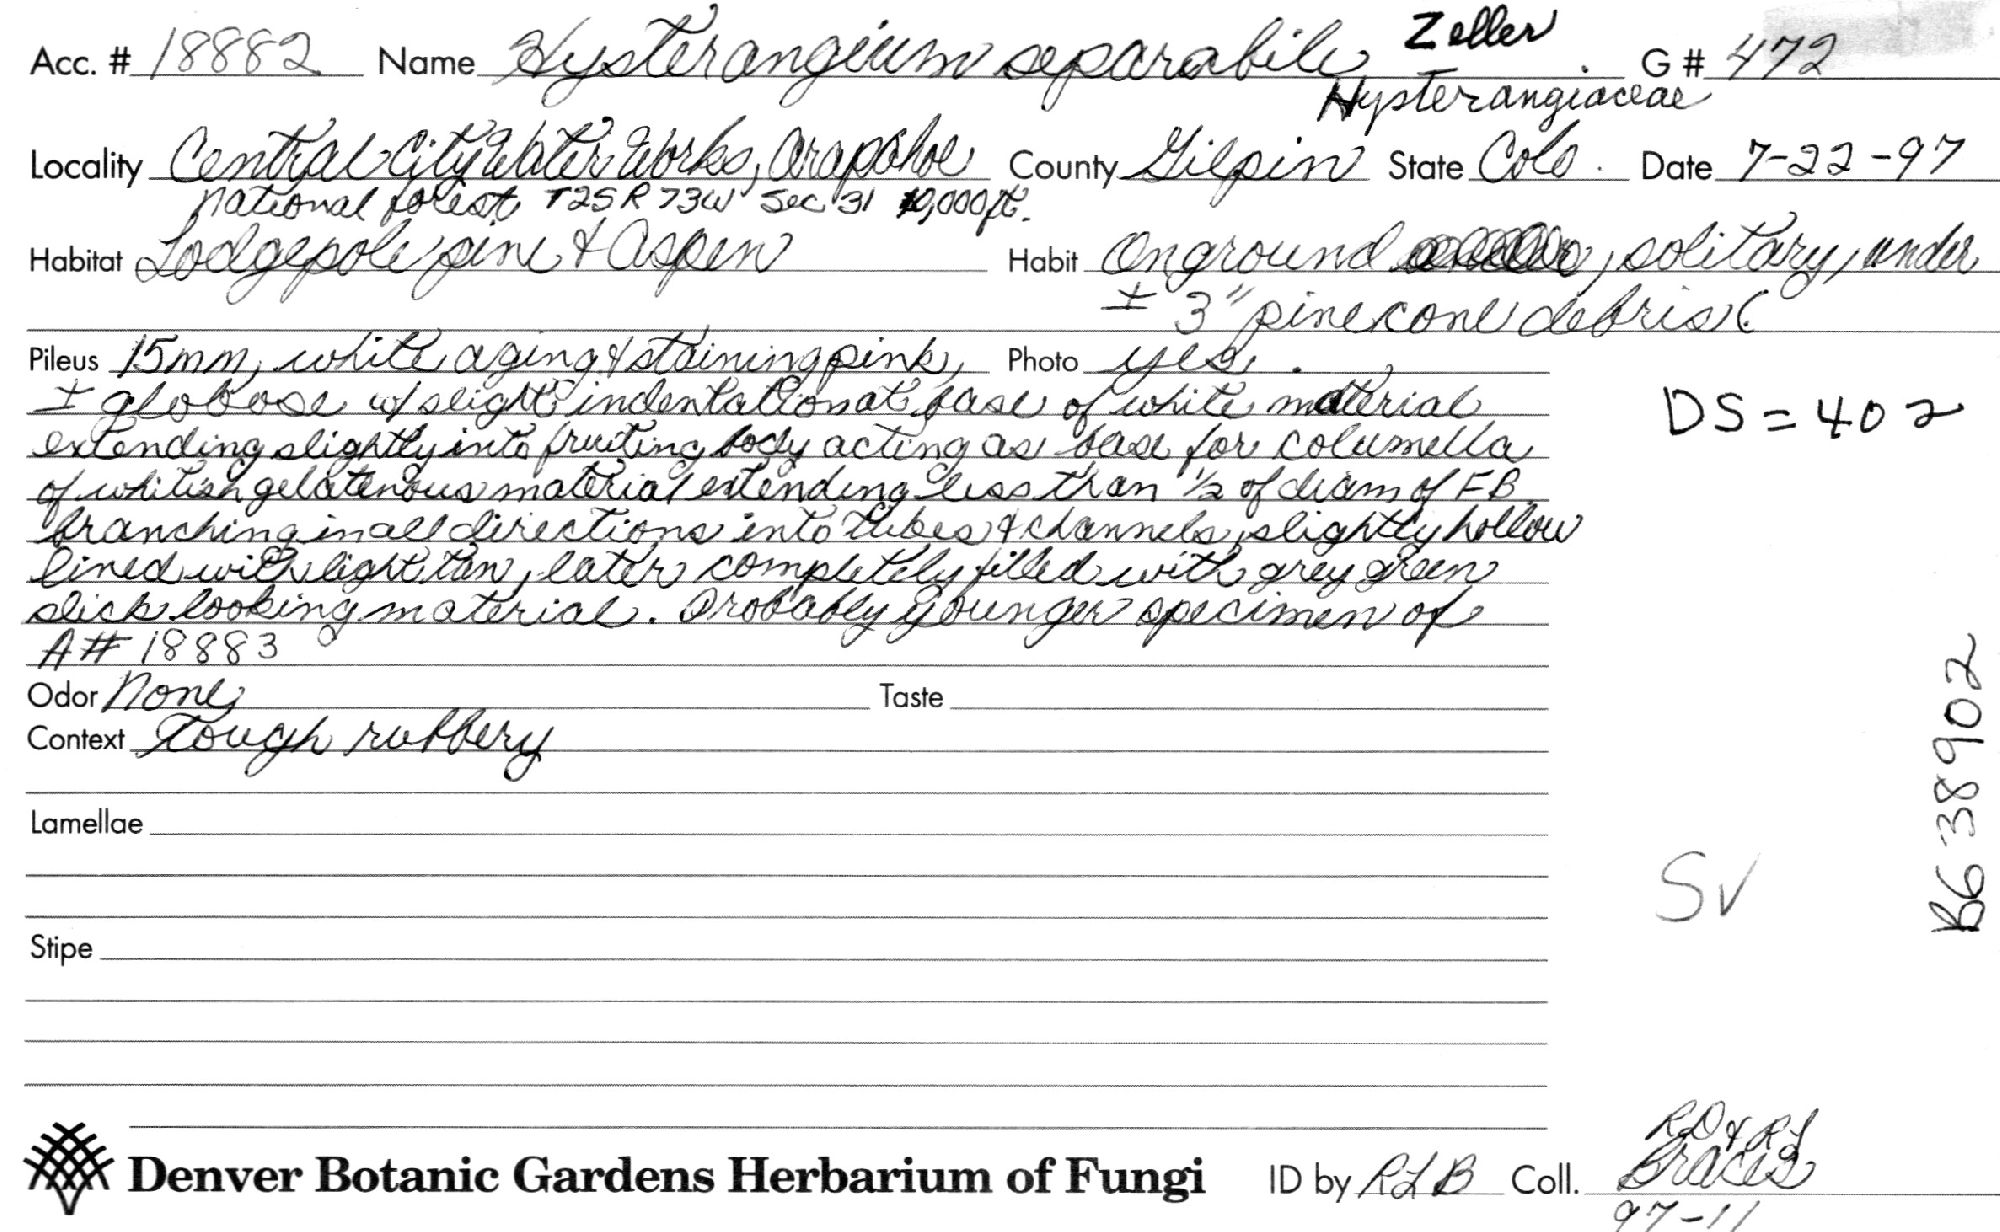 Zeller
Acc. # 18882 Name Hysterangium separabile G # 472
Hysterangiaceae
Locality Central City Water Works, Arapahoe County Gilpin State Colo. Date 7-22-97
National Forest T2S R 73W Sec 31 10,000ft.
Habitat Lodgepole pine & Aspen Habit On ground , solitary, under
± 3" pine cone debris
Pileus 15mm, white aging & staining pink, Photo yes.
± globose w/ slight indentation at base of white material
DS = 402
extending slightly into fruiting body acting as base for columella
of whitish gelatenous material extending less than 1/2 of diam of FB
branching in all directions into tubes & channels, slightly hollow
lined with light tan, later completely filled with grey green
slick looking material. Probably younger specimen of
A# 18883
Odor None Taste
Context Tough rubbery
Lamellae
SV
B638902
Stipe
Denver Botanic Gardens Herbarium of Fungi ID by RLB Coll. RD & RL
Brace
97-11